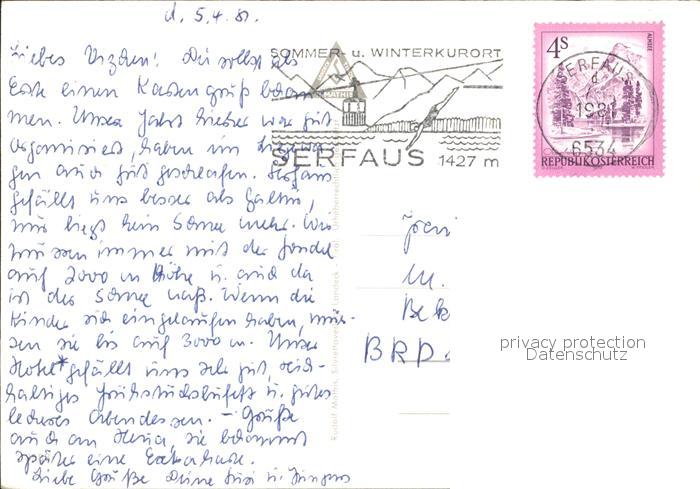 d. 5.4.81.
Liebes Du sollst als
Erste einen Kartengruß bekom
men. Unsere Fahrt hierher war gut
organisiert, haben im Liegewa
gen auch gut geschlafen. Serfaus
gefällt uns besser als Galtür,
nur liegt kein Schnee mehr. Wir
müssen immer mit der Gondel
auf 2000 m Höhe u. auch da
ist der Schnee naß. Wenn die
Kinder sich eingelaufen haben, müs-
sen sie bis auf 3000 m. Unser
Hotel* gefällt uns sehr gut, reich-
haltiges Frühstücksbufett u. gutes
leckeres Abendessen. – Grüße
auch an sie bekommt
später eine Extrakarte.
Liebe Grüße Deine u. Jungens
SOMMER- u. WINTERKURORT
SERFAUS 1427 m
4S
ALMSEE
REPUBLIK ÖSTERREICH
SERFAUS
d
1981
6534
BRD.
privacy protection
Datenschutz